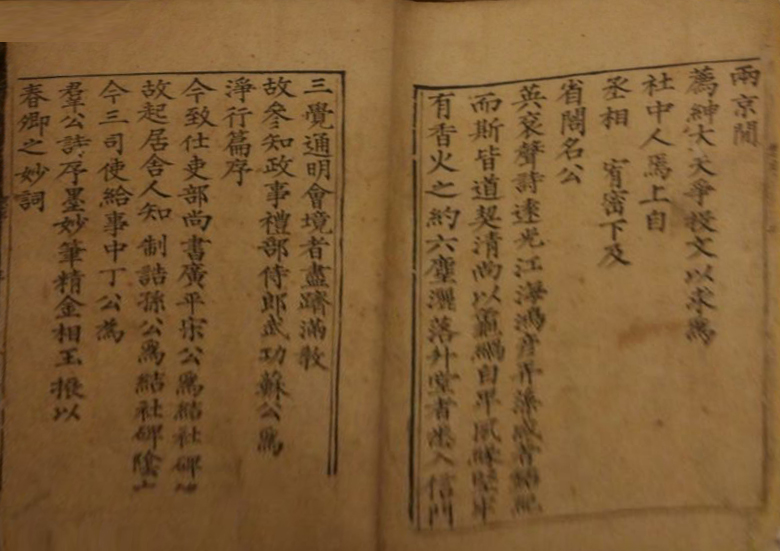 兩京閒
薦紳大夫爭投文以求爲
社中人焉上自
丞相 宥密下及
省閣名公
英衮聲詩迭光江海鴻彦弄藻咸
而斯皆道契清尚以自
有香火之約六塵灑落外者悉入信門
三覺通明會境者盡躋滿教
故參知政事禮部侍郎武功蘇公爲
淨行篇序
今致仕吏部尚書廣平宋公爲結社碑
故起居舍人知 制誥孫公爲結社碑陰
今三司使給事中丁公爲
羣公詩序墨妙筆精金相玉振以
春卿之妙詞